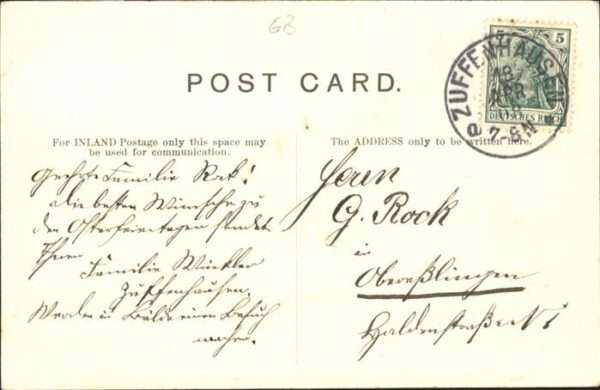 GB
POST CARD.
5 5
DEUTSCHES REICH
ZUFFENHAUSEN
18
APR
7-8 N
a
For INLAND Postage only this space may
be used for communication.
The ADDRESS only to be written here.
Geehrte Familie Rock!
die besten Wünsche zu
den Osterfeiertagen sendet
Ihnen
Familie Winkler
Zuffenhausen.
Werden in Bälde einen Besuch
machen.
Herrn
G. Rock
in
Oberesslingen
Haldenstraße